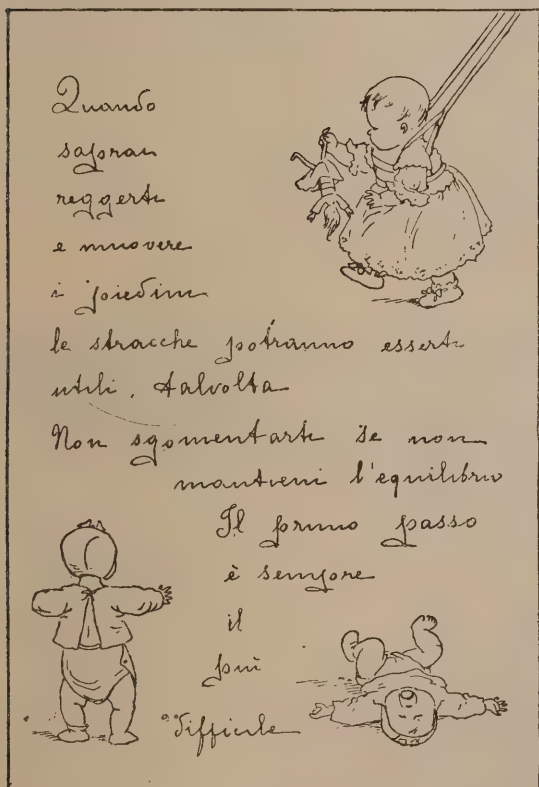 Quando
sapran
reggerti
e muovere
i piedini
le stracche potranno esserti
utili, talvolta
Non sgomentarti se non
mantieni l'equilibrio
Il primo passo
è sempre
il
più
difficile